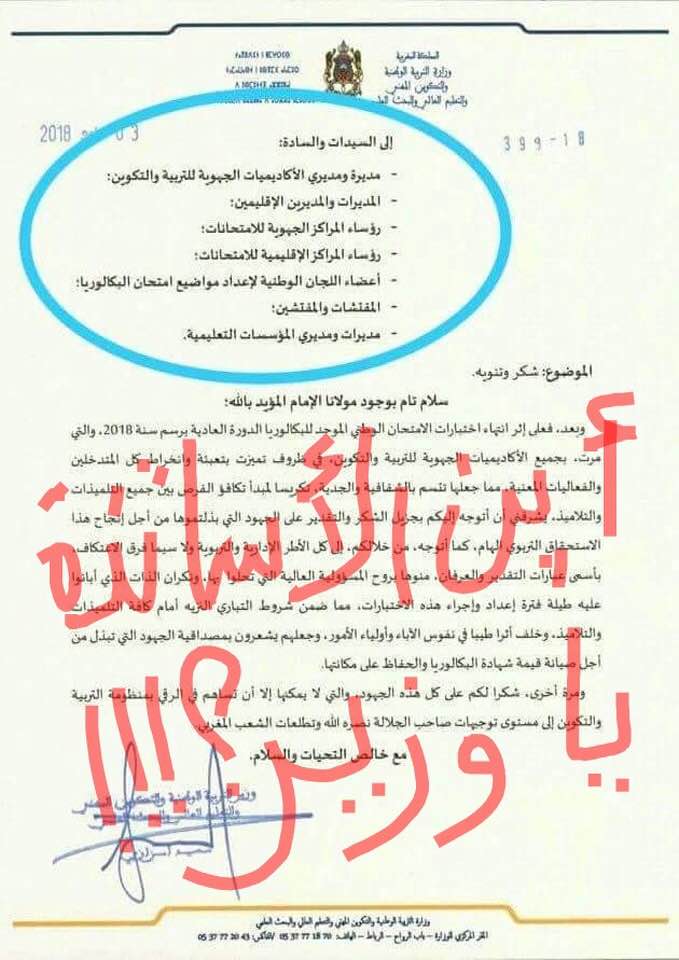 المملكة المغربية
وزارة التربية الوطنية
والتكوين المهني
والتعليم العالي والبحث العلمي
399-18
03 2018
إلى السيدات والسادة:
- مديرة ومديري الأكاديميات الجهوية للتربية والتكوين:
- المديرات والمديرين الإقليمين:
- رؤساء المراكز الجهوية للامتحانات:
- رؤساء المراكز الإقليمية للامتحانات:
- أعضاء اللجان الوطنية لإعداد مواضيع امتحان البكالوريا:
- المفتشات والمفتشين:
- مديرات ومديري المؤسسات التعليمية.
الموضوع: شكر وتنويه.
سلام تام بوجود مولانا الإمام المؤيد بالله؛
وبعد، فعلى إثر انتهاء اختبارات الامتحان الوطني الموحد للبكالوريا الدورة العادية برسم سنة 2018، والتي
مرت، بجميع الأكاديميات الجهوية للتربية والتكوين، في ظروف تميزت بتعبئة وانخراط كل المتدخلين
والفعاليات المعنية، مما جعلها تتسم بالشفافية والجدية، تكريسا لمبدأ تكافؤ الفرص بين جميع التلميذات
والتلاميذ، يشرفني أن أتوجه إليكم بجزيل الشكر والتقدير على الجهود التي بذلتموها من أجل إنجاح هذا
الاستحقاق التربوي الهام، كما أتوجه، من خلالكم، إلى كل الأطر الإدارية والتربوية ولا سيما فرق الاعتكاف،
بأسمى عبارات التقدير والعرفان، منوها بروح المسؤولية العالية التي تحلوا بها، ونكران الذات الذي أبانوا
عليه طيلة فترة إعداد وإجراء هذه الاختبارات، مما ضمن شروط التباري النزيه أمام كافة التلميذات
والتلاميذ، وخلف أثرا طيبا في نفوس الآباء وأولياء الأمور، وجعلهم يشعرون بمصداقية الجهود التي تبذل من
أجل صيانة قيمة شهادة البكالوريا والحفاظ على مكانتها.
ومرة أخرى، شكرا لكم على كل هذه الجهود، والتي لا يمكنها إلا أن تساهم في الرقي بمنظومة التربية
والتكوين إلى مستوى توجهات صاحب الجلالة نصره الله وتطلعات الشعب المغربي.
مع خالص التحيات والسلام.
أين الأساتذة
يا وزير؟!!!
وزير التربية الوطنية والتكوين المهني
والتعليم العالي والبحث العلمي
سعيد أمزازي
وزارة التربية الوطنية والتكوين المهني والتعليم العالي والبحث العلمي
المقر المركزي للوزارة - باب الرواح - الرباط - الهاتف: 05 37 77 18 70 /الفاكس: 05 37 77 20 43